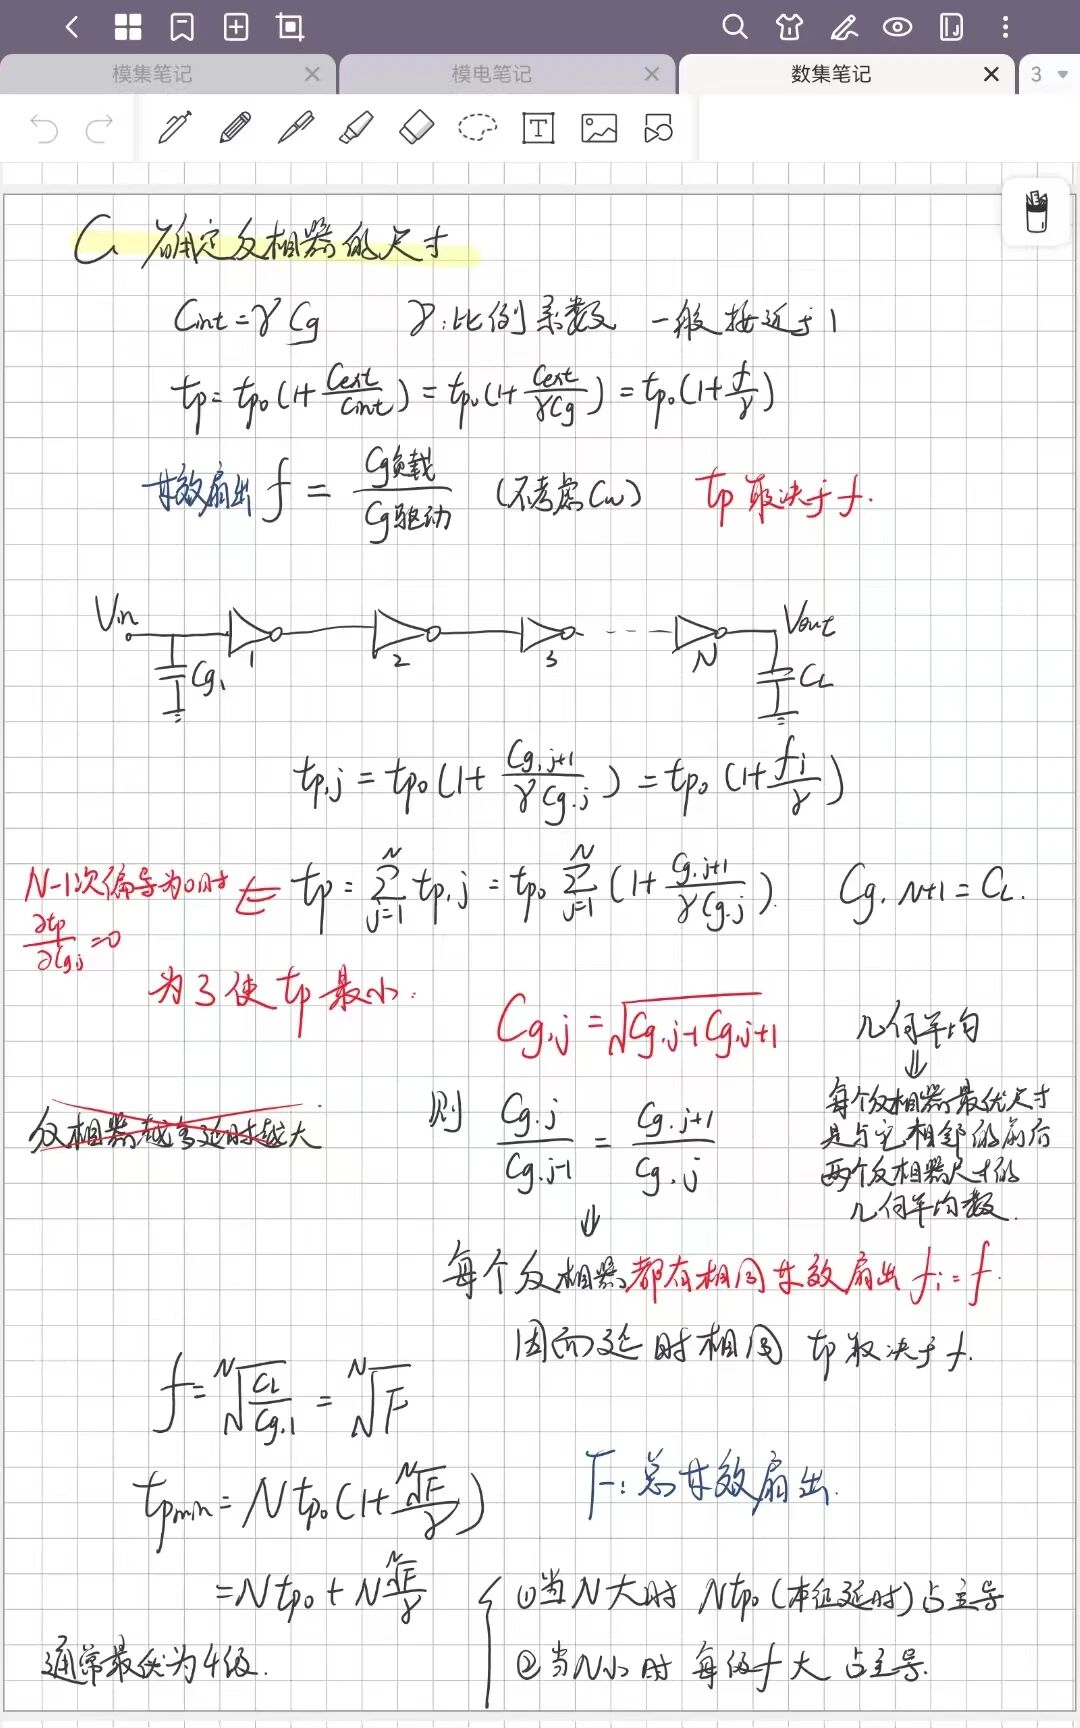 模集笔记
模电笔记
数集笔记
3
C. 确定反相器的尺寸
Cint = γCg  γ: 比例系数  一般接近于1
tp = tp₀(1+Cext/Cint) = tp₀(1+Cext/γCg) = tp₀(1+f/γ)
等效扇出 f = Cg负载/Cg驱动 (不考虑Cw)  tp 取决于 f.
Vin  Vout
Cg1  1  2  3  N  CL
tp,j = tp₀(1+Cg,j+1/γCg,j) = tp₀(1+fj/γ)
N-1次偏导为0时 ⇐ tp = Σ(j=1→N) tp,j = tp₀ Σ(j=1→N) (1+Cg,j+1/γCg,j).  Cg,N+1 = CL.
∂tp/∂Cgj = 0
为了使 tp 最小:
Cg,j = √(Cg,j-1 Cg,j+1)  几何平均
⇓
反相器越多延时越大
则 Cg,j/Cg,j-1 = Cg,j+1/Cg,j
每个反相器最优尺寸
是与它相邻的前后
两个反相器尺寸的
几何平均数.
⇓
每个反相器都有相同等效扇出 fi = f.
因而延时相同 tp 取决于 f.
f = ᴺ√(CL/Cg,1) = ᴺ√F
F: 总等效扇出.
tpmin = N tp₀(1+ᴺ√F/γ)
= N tp₀ + N ᴺ√F/γ
①当N大时 Ntp₀(本征延时)占主导
通常最优为4级.
②当N小时 每级f大 占主导.